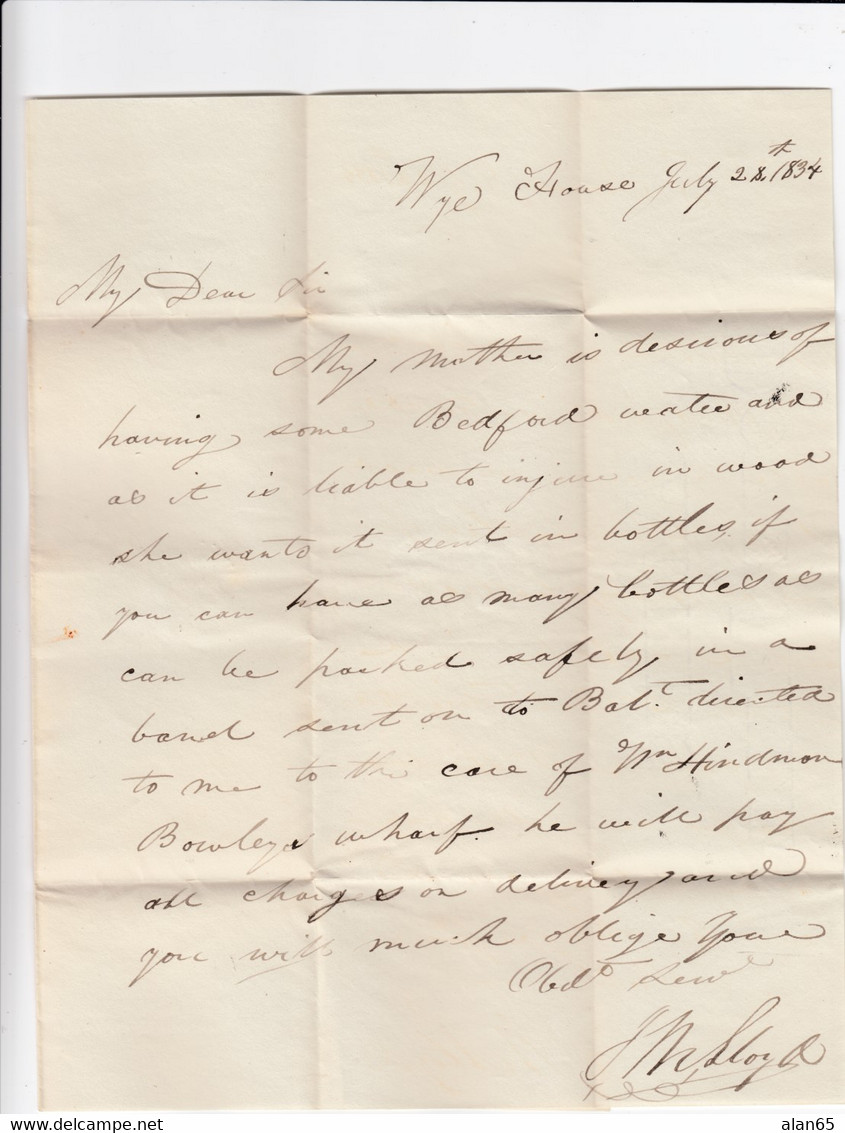 Wye House July 28th 1834
My Dear Sir
My mother is desirous of
having some Bedford water and
as it is liable to injure in wood
she wants it sent in bottles, if
you can have as many bottles as
can be packed safely in a
barrel sent on to Balt. directed
to me to the care of Wm Hindmon
Bowleys wharf he will pay
all charges on delivery and
you will much oblige Your
Obdt Servt
Lloyd
delcampe.net
alan65